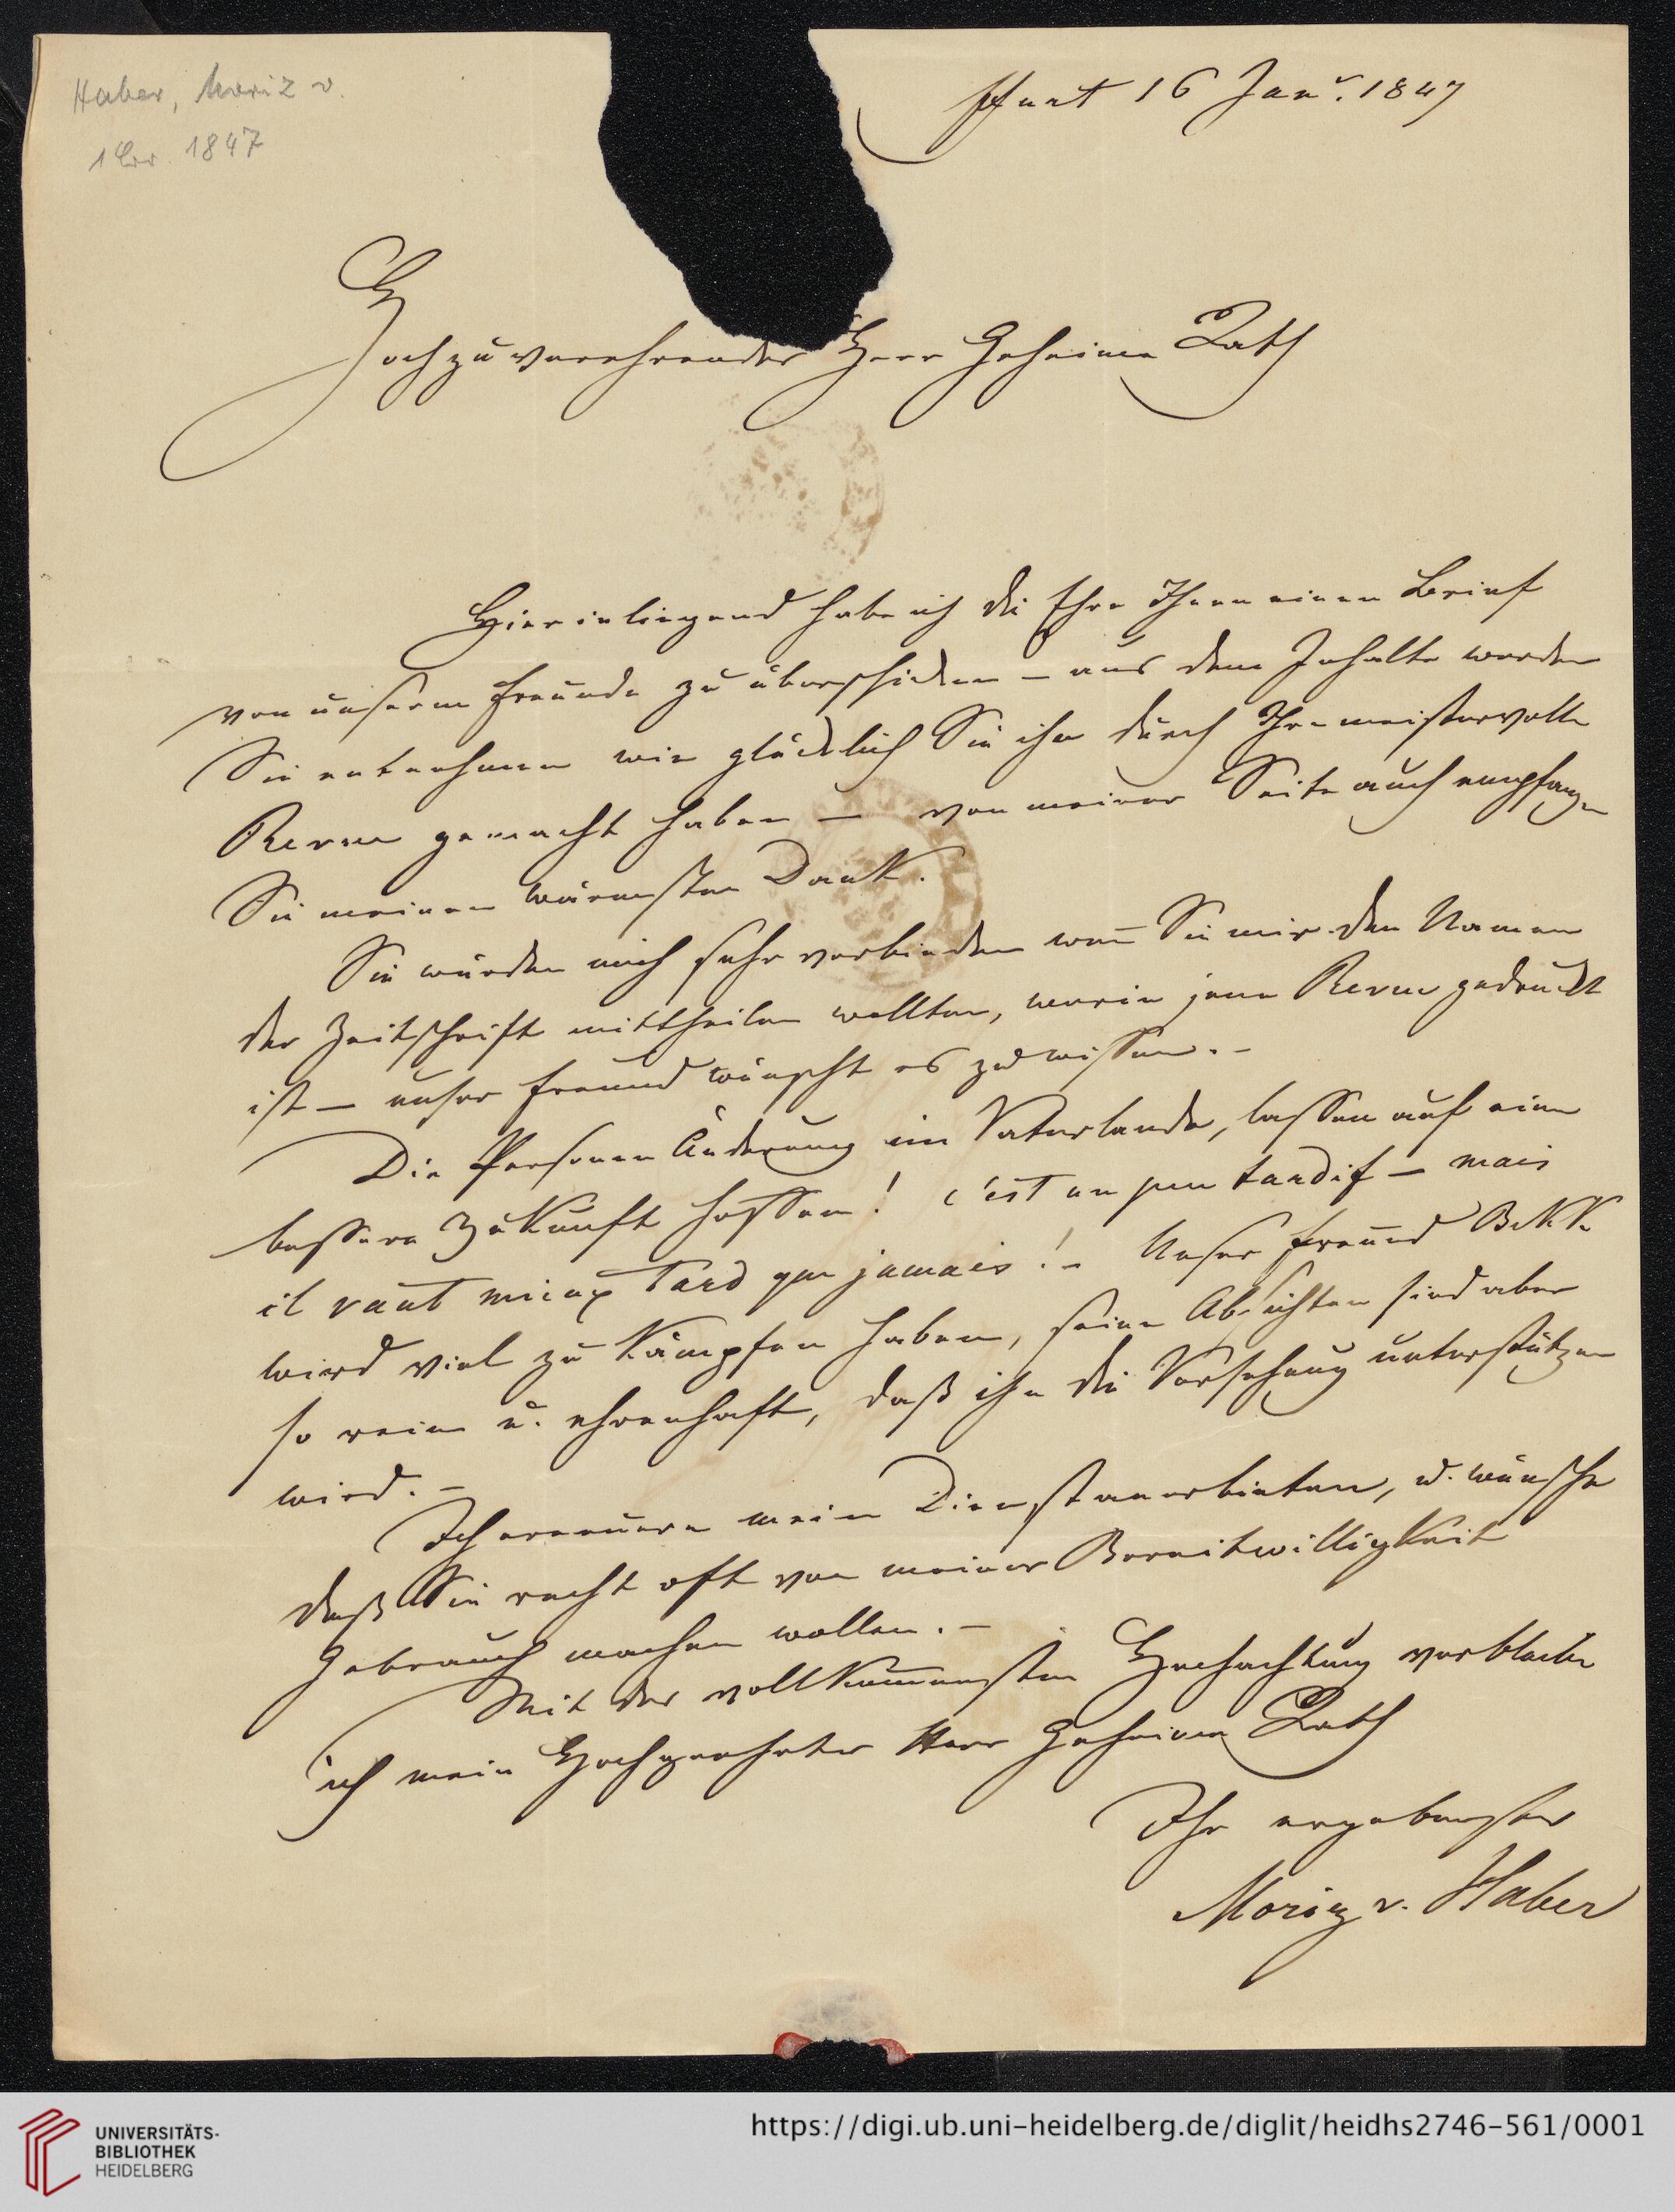 Haber, Moriz v.
1 Br. 1847
Ffurt 16 Janr. 1847
Hochzuverehrender Herr Geheime Rath
Hier inliegend habe ich die Ehre Ihnen einen Brief
von unserm Freunde zu überschicken – aus dem Inhalte werden
Sie entnehmen wie glücklich Sie ihn durch Ihre meistervolle
Revue gemacht haben – von meiner Seite auch empfangen
Sie meinen wärmsten Dank.
Sie würden mich sehr verbinden wen̄ Sie mir den Namen
der Zeitschrift mittheilen wollten, worin jene Revue gedruckt
ist – unser Freund wünscht es zu wissen. –
Die Personen Änderung im Vaterlande, lassen auf eine
bessere Zukunft hoffen! c'est un peu tardif – mais
il vaut mieux tard que jamais! – Unser Freund Bekk
wird viel zu kämpfen haben, seine Absichten sind aber
so rein u. ehrenhaft, daß ihn die Vorsehung unterstützen
wird. –
Ich erneuere mein Dienstanerbieten, u. wünsche
daß Sie recht oft von meiner Bereitwilligkeit
Gebrauch machen wollen. –
Mit der vollkom̄ensten Hochachtung verbleibe
ich mein Hochgeehrter Herr Geheime Rath
Ihr ergebenster
Moriz v. Haber
UNIVERSITÄTS-
BIBLIOTHEK
HEIDELBERG
https://digi.ub.uni-heidelberg.de/diglit/heidhs2746-561/0001